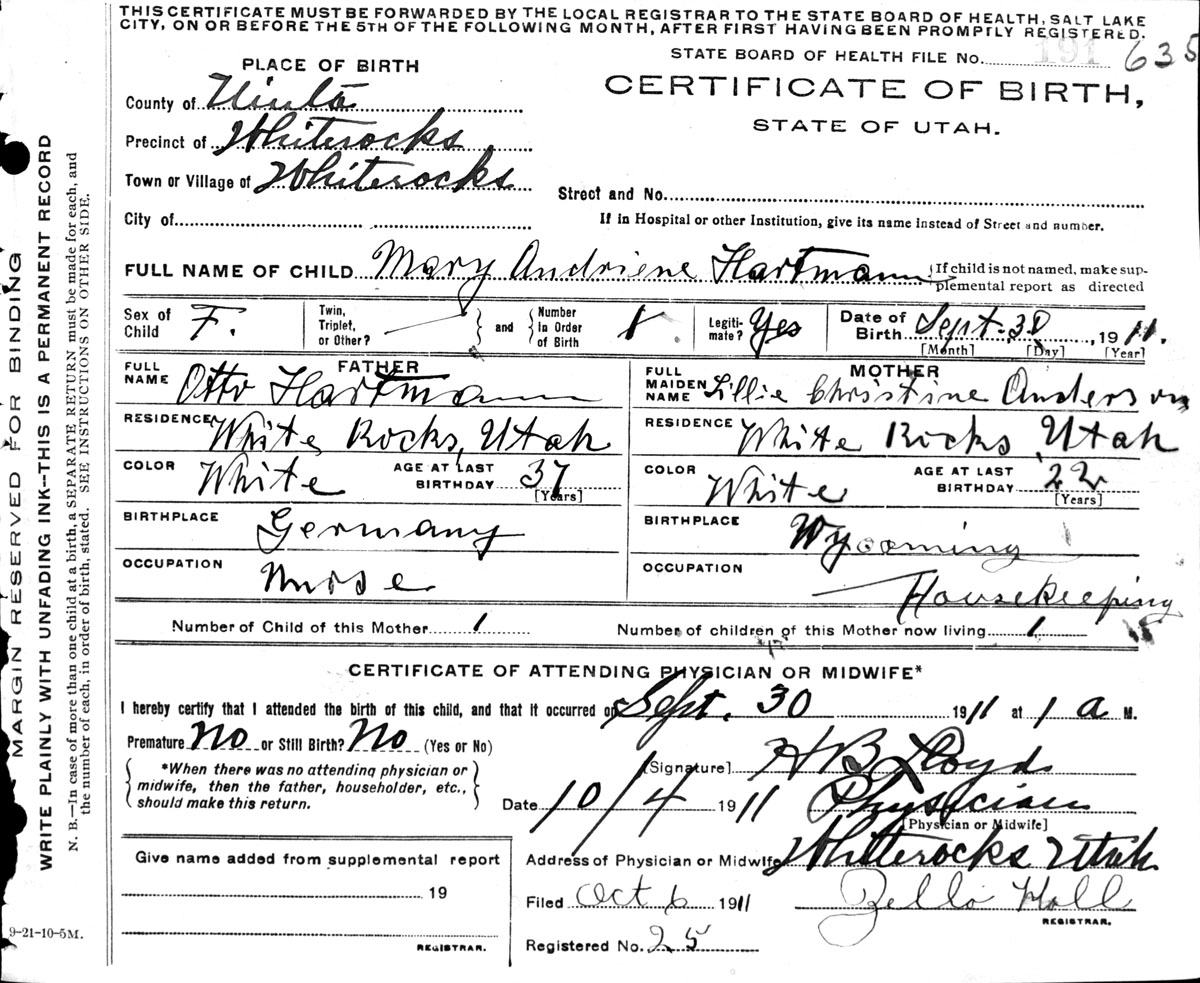 THIS CERTIFICATE MUST BE FORWARDED BY THE LOCAL REGISTRAR TO THE STATE BOARD OF HEALTH, SALT LAKE
CITY, ON OR BEFORE THE 5TH OF THE FOLLOWING MONTH, AFTER FIRST HAVING BEEN PROMPTLY REGISTERED.
STATE BOARD OF HEALTH FILE No. 191 635
PLACE OF BIRTH
CERTIFICATE OF BIRTH,
STATE OF UTAH.
County of Uinta
Precinct of Whiterocks
Town or Village of Whiterocks
Street and No.
City of
If in Hospital or other Institution, give its name instead of Street and number.
FULL NAME OF CHILD Mary Andriene Hartmann
If child is not named, make sup-
plemental report as directed
Sex of Child F.
Twin, Triplet, or Other?
and
Number In Order of Birth 1
Legiti-mate? Yes
Date of Birth Sept. 30, 1911.
[Month] [Day] [Year]
FATHER
FULL NAME Otto Hartmann
RESIDENCE White Rocks, Utah
COLOR White AGE AT LAST BIRTHDAY 37
[Years]
BIRTHPLACE Germany
OCCUPATION Nurse
MOTHER
FULL MAIDEN NAME Lillie Christine Anderson
RESIDENCE White Rocks, Utah
COLOR White AGE AT LAST BIRTHDAY 22
[Years]
BIRTHPLACE Wyoming
OCCUPATION Housekeeping
Number of Child of this Mother 1 Number of children of this Mother now living 1
CERTIFICATE OF ATTENDING PHYSICIAN OR MIDWIFE*
I hereby certify that I attended the birth of this child, and that it occurred on Sept. 30 1911 at 1 a M.
Premature No or Still Birth? No (Yes or No)
*When there was no attending physician or
midwife, then the father, householder, etc.,
should make this return.
[Signature] H B Lloyd
Date 10/4 1911 Physician
[Physician or Midwife]
Address of Physician or Midwife Whiterocks Utah
Give name added from supplemental report
19
REGISTRAR.
Filed Oct 6 1911 Zella Hall
REGISTRAR.
Registered No. 25
9-21-10-5M.
MARGIN RESERVED FOR BINDING
WRITE PLAINLY WITH UNFADING INK--THIS IS A PERMANENT RECORD
N. B.—In case of more than one child at a birth, a SEPARATE RETURN must be made for each, and
the number of each, in order of birth, stated. SEE INSTRUCTIONS ON OTHER SIDE.